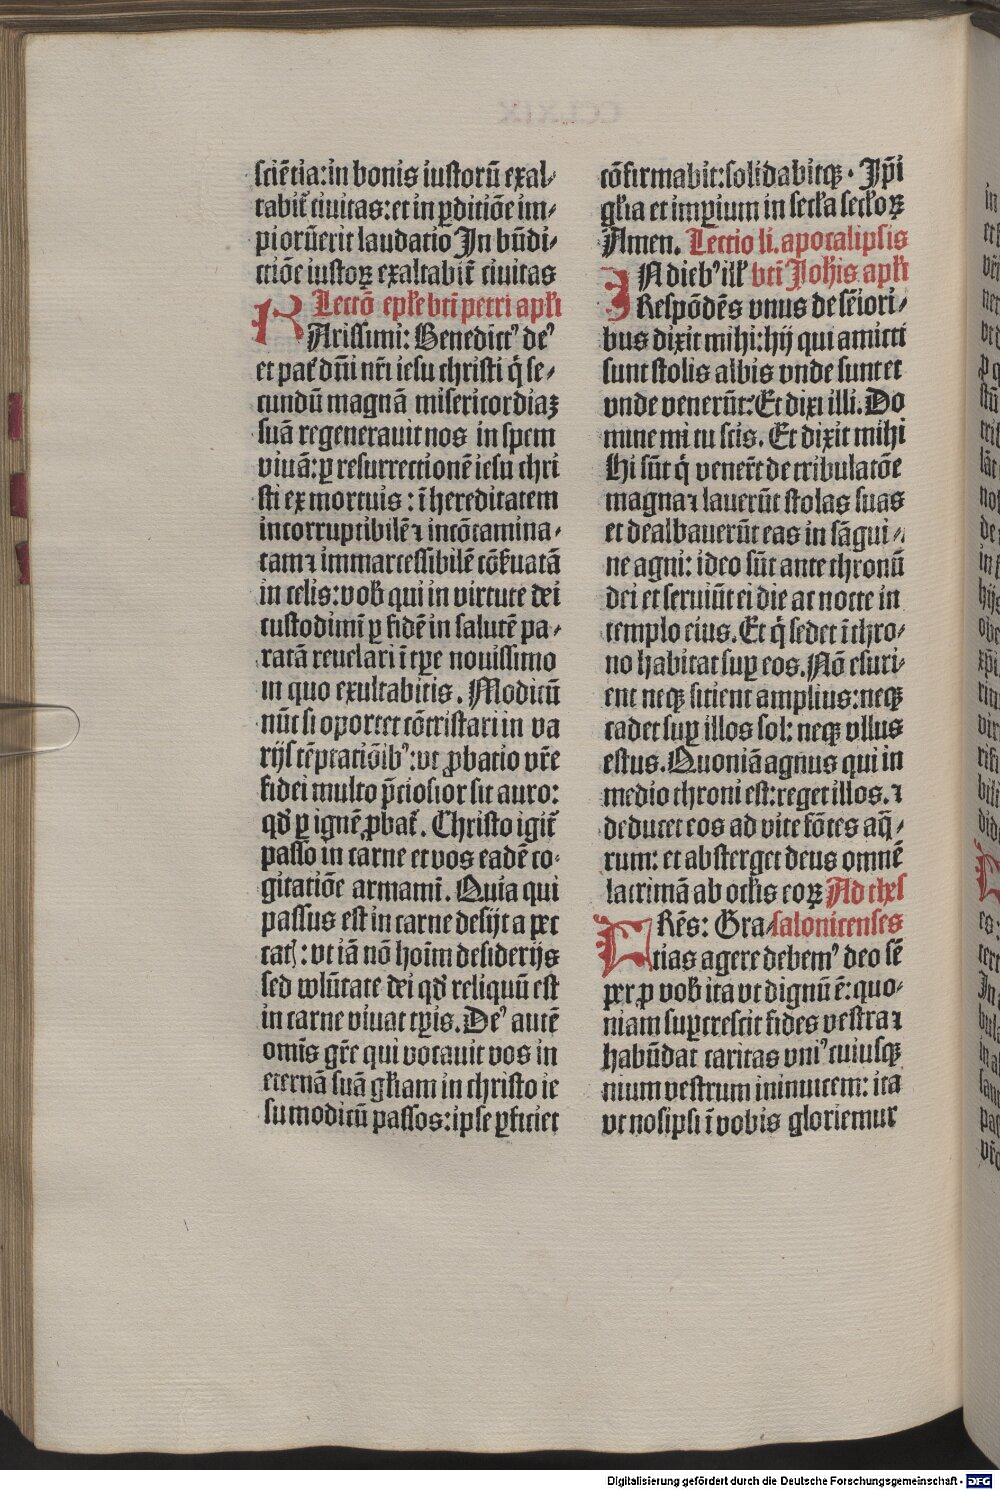 sciētia:in bonis iustorū exal⸗
tabit᷑ ciuitas:et in ꝑditiōe im⸗
piorū erit laudatio In bn̄di⸗
ctiōe iustoꝝ exaltabit᷑ ciuitas
Lectō ep̄le bt̄i petri apl̄i
KArissimi: Benedictꝰ deꝰ
et pat᷑ dn̄i nr̄i iesu christi q̄ se⸗
cundū magnā misericordiaꝫ
suā regenerauit nos in spem
viuā:ꝑ resurrectionē iesu chri
sti ex mortuis: ī hereditatem
incorruptibilē ⁊ incōtamina⸗
tam ⁊ immarcessibilē cōẜuatā
in celis:vob̄ qui in virtute dei
custodimī ꝑ fidē in salutē pa⸗
ratā reuelari ī tꝑe nouissimo
in quo exultabitis. Modicū
nūc si oportet cōtristari in va
rijs tēptatiōibꝰ:vt ꝓbatio vr̄e
fidei multo p̄ciosior sit auro:
qd̄ ꝑ ignē ꝓbat᷑. Christo igit᷑
passo in carne et vos eadē co⸗
gitatiōe armamī. Quia qui
passus est in carne desijt a pec
catꝭ: vt iā nō hoīm desiderijs
sed volūtate dei qd̄ reliquū est
in carne viuat tꝑis. Deꝰ autē
omīs gr̄e qui vocauit vos in
eternā suā gl̄iam in christo ie
su modicū passos:ipse ꝑficiet
cōfirmabit:solidabitqꝫ. Ip̄i
gl̄ia et imꝑium in secl̄a secl̄oꝝ
Amen. Lectio li. apocalipsis
IN diebꝰ ill̄ bt̄i Joh̄is apl̄i
Respōdēs vnus de sēiori⸗
bus dixit mihi:hij qui amicti
sunt stolis albis vnde sunt et
vnde venerūt: Et dixi illi. Do
mine mi tu scis. Et dixit mihi
Hi sūt q̄ vener̄t de tribulatōe
magna ⁊ lauerūt stolas suas
et dealbauerūt eas in sāgui⸗
ne agni: ideo sūt ante thronū
dei et seruiūt ei die ac nocte in
templo eius. Et q̄ sedet ī thro⸗
no habitat suꝑ eos. Nō esuri⸗
ent neqꝫ sitient amplius:neqꝫ
cadet suꝑ illos sol: neqꝫ vllus
estus. Quoniā agnus qui in
medio throni est:reget illos. ⁊
deducet eos ad vite fōtes aq̄⸗
rum: et absterget deus omnē
lacrimā ab ocl̄is eoꝝ Ad thes
FRēs: Gra⸗salonicenses
tias agere debemꝰ deo sē
ꝑ ꝓ vob̄ ita vt dignū ē: quo⸗
niam suꝑcrescit fides vestra ⁊
habūdat caritas vniꝰcuiusqꝫ
nium vestrum inuicem: ita
vt nosipsi ī vobis gloriemur
Digitalisierung gefördert durch die Deutsche Forschungsgemeinschaft - DFG